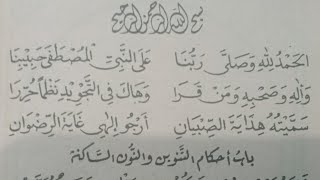 بسم الله الرحمن الرحيم
الحمد لله وصلى ربنا على النبي المصطفى حبيبنا
وآله وصحبه ومن قرا وهاك في التجويد نظما حررا
سميته هداية الصبيان أرجو إلهي غاية الرضوان
باب أحكام التنوين والنون الساكنة